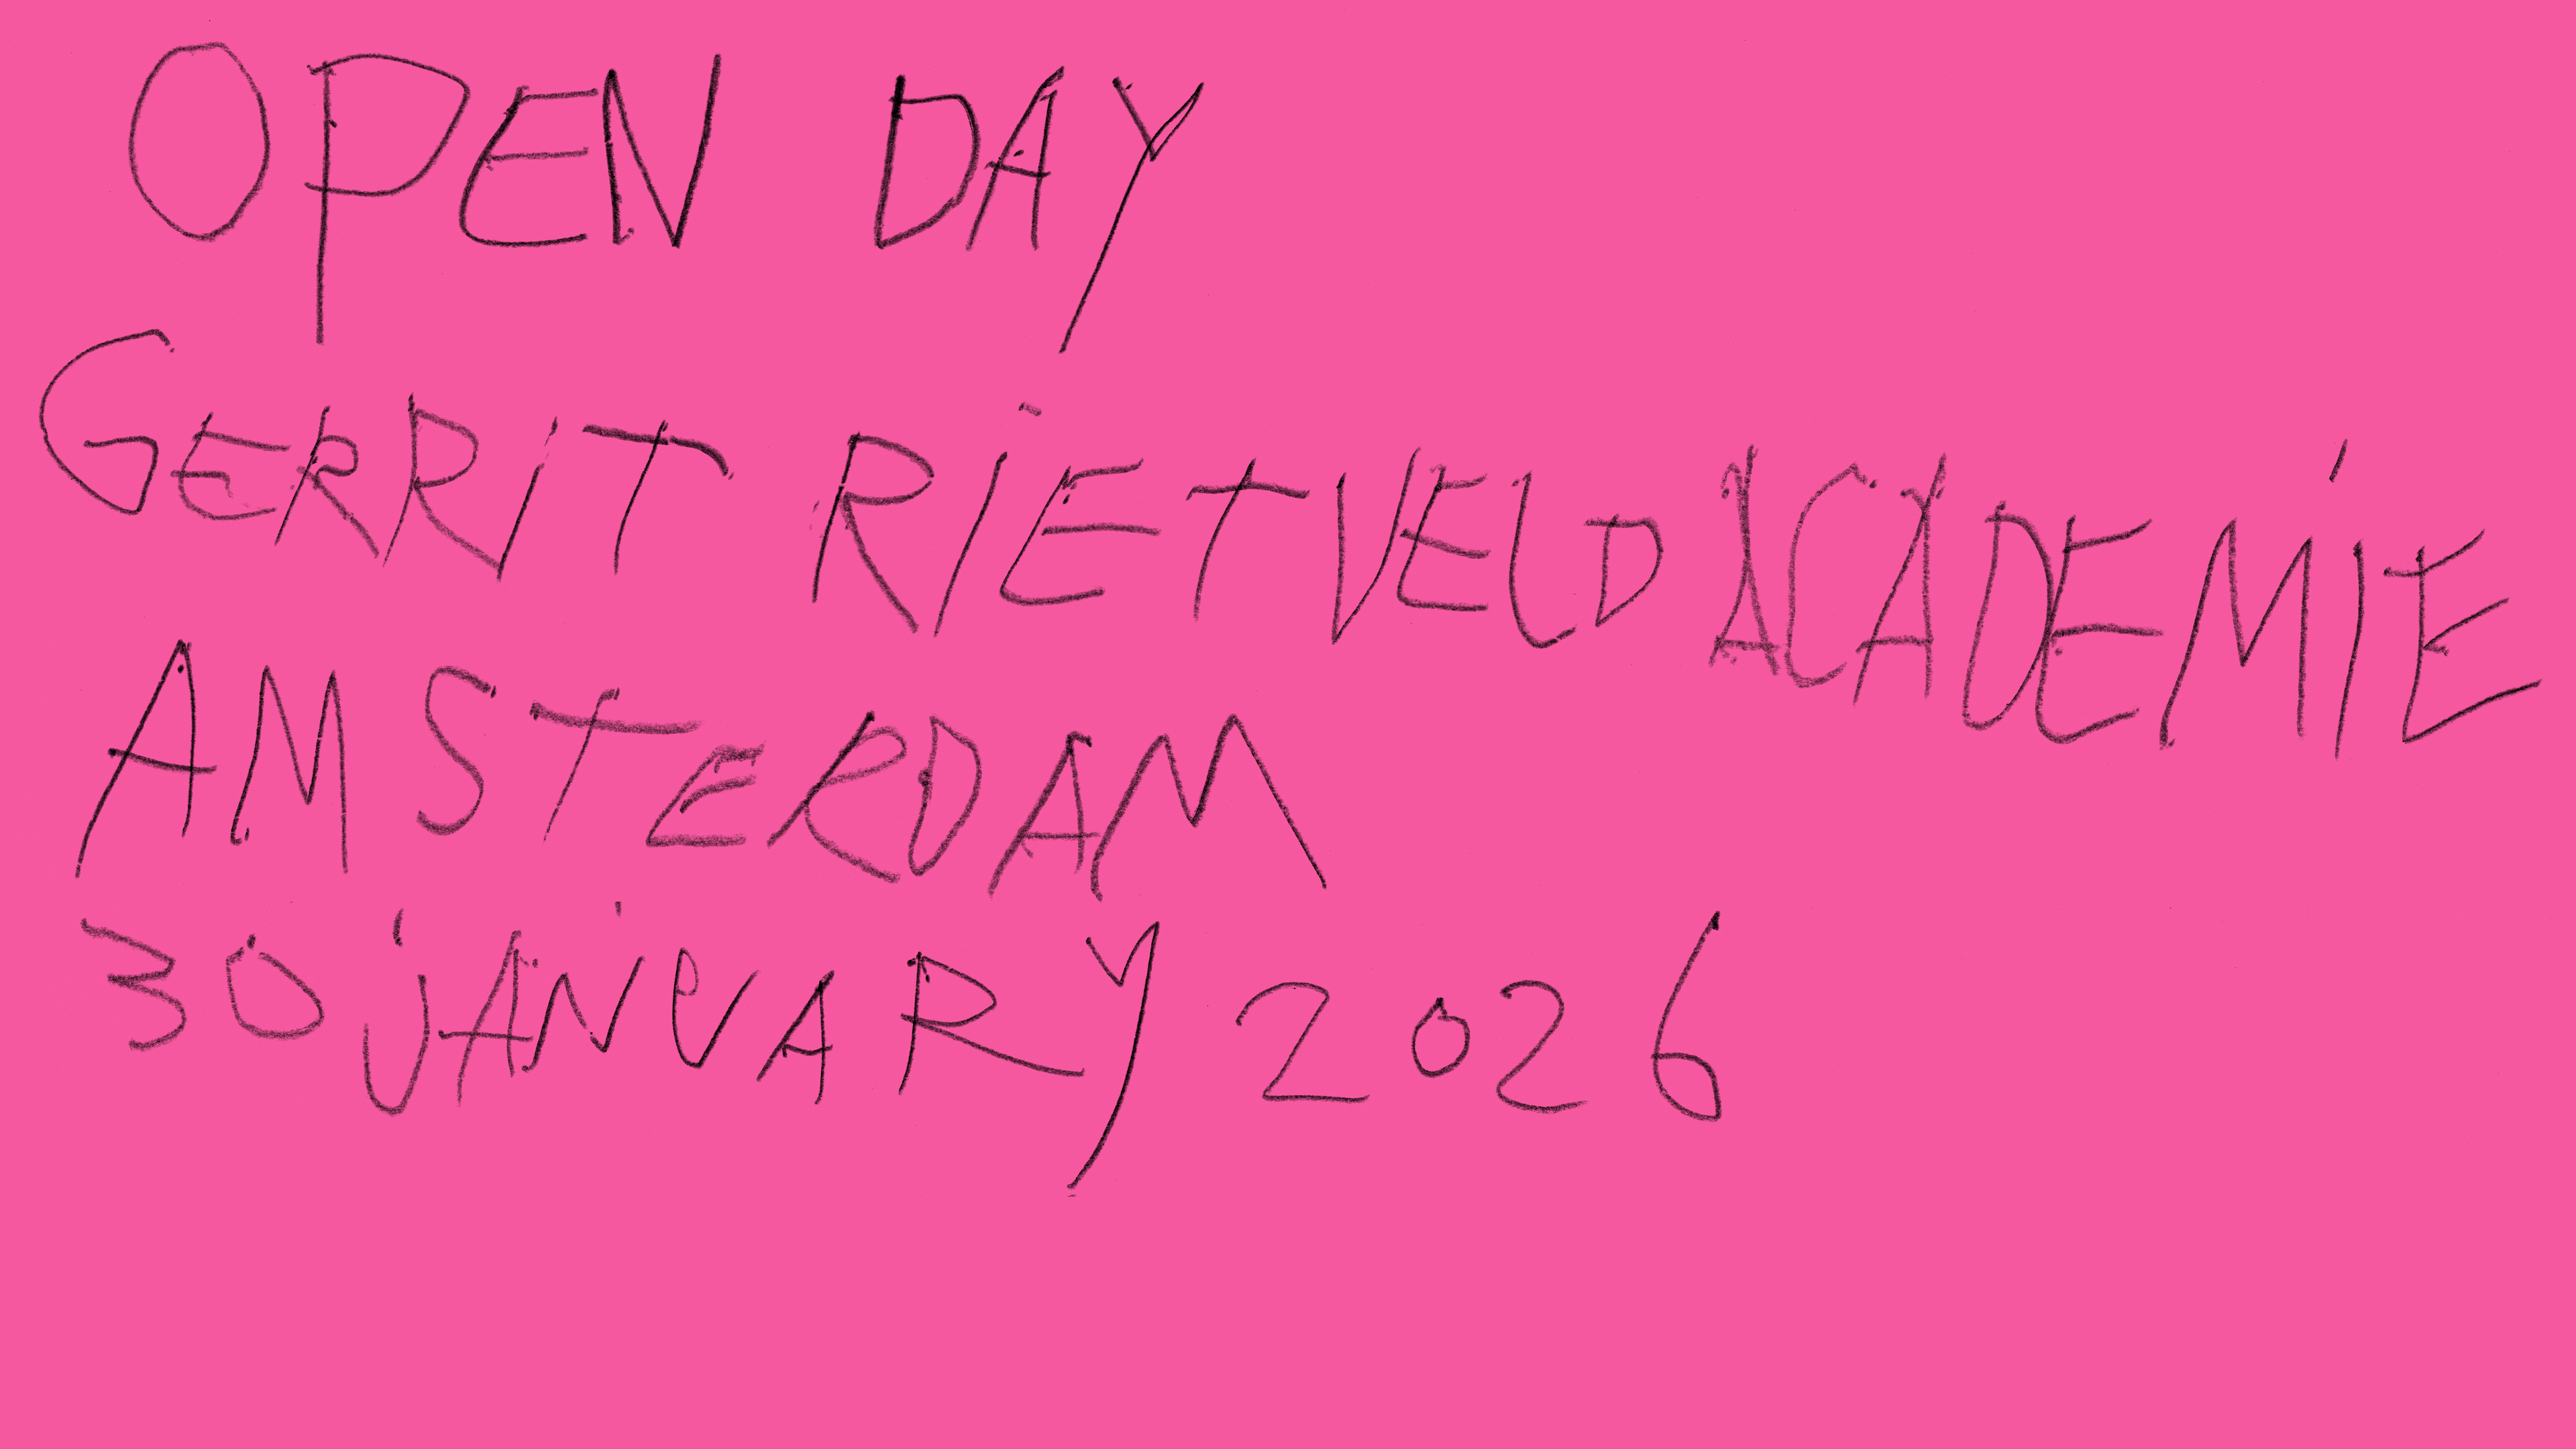 OPEN DAY
GERRIT RIETVELD ACADEMIE
AMSTERDAM
30 JANUARY 2026